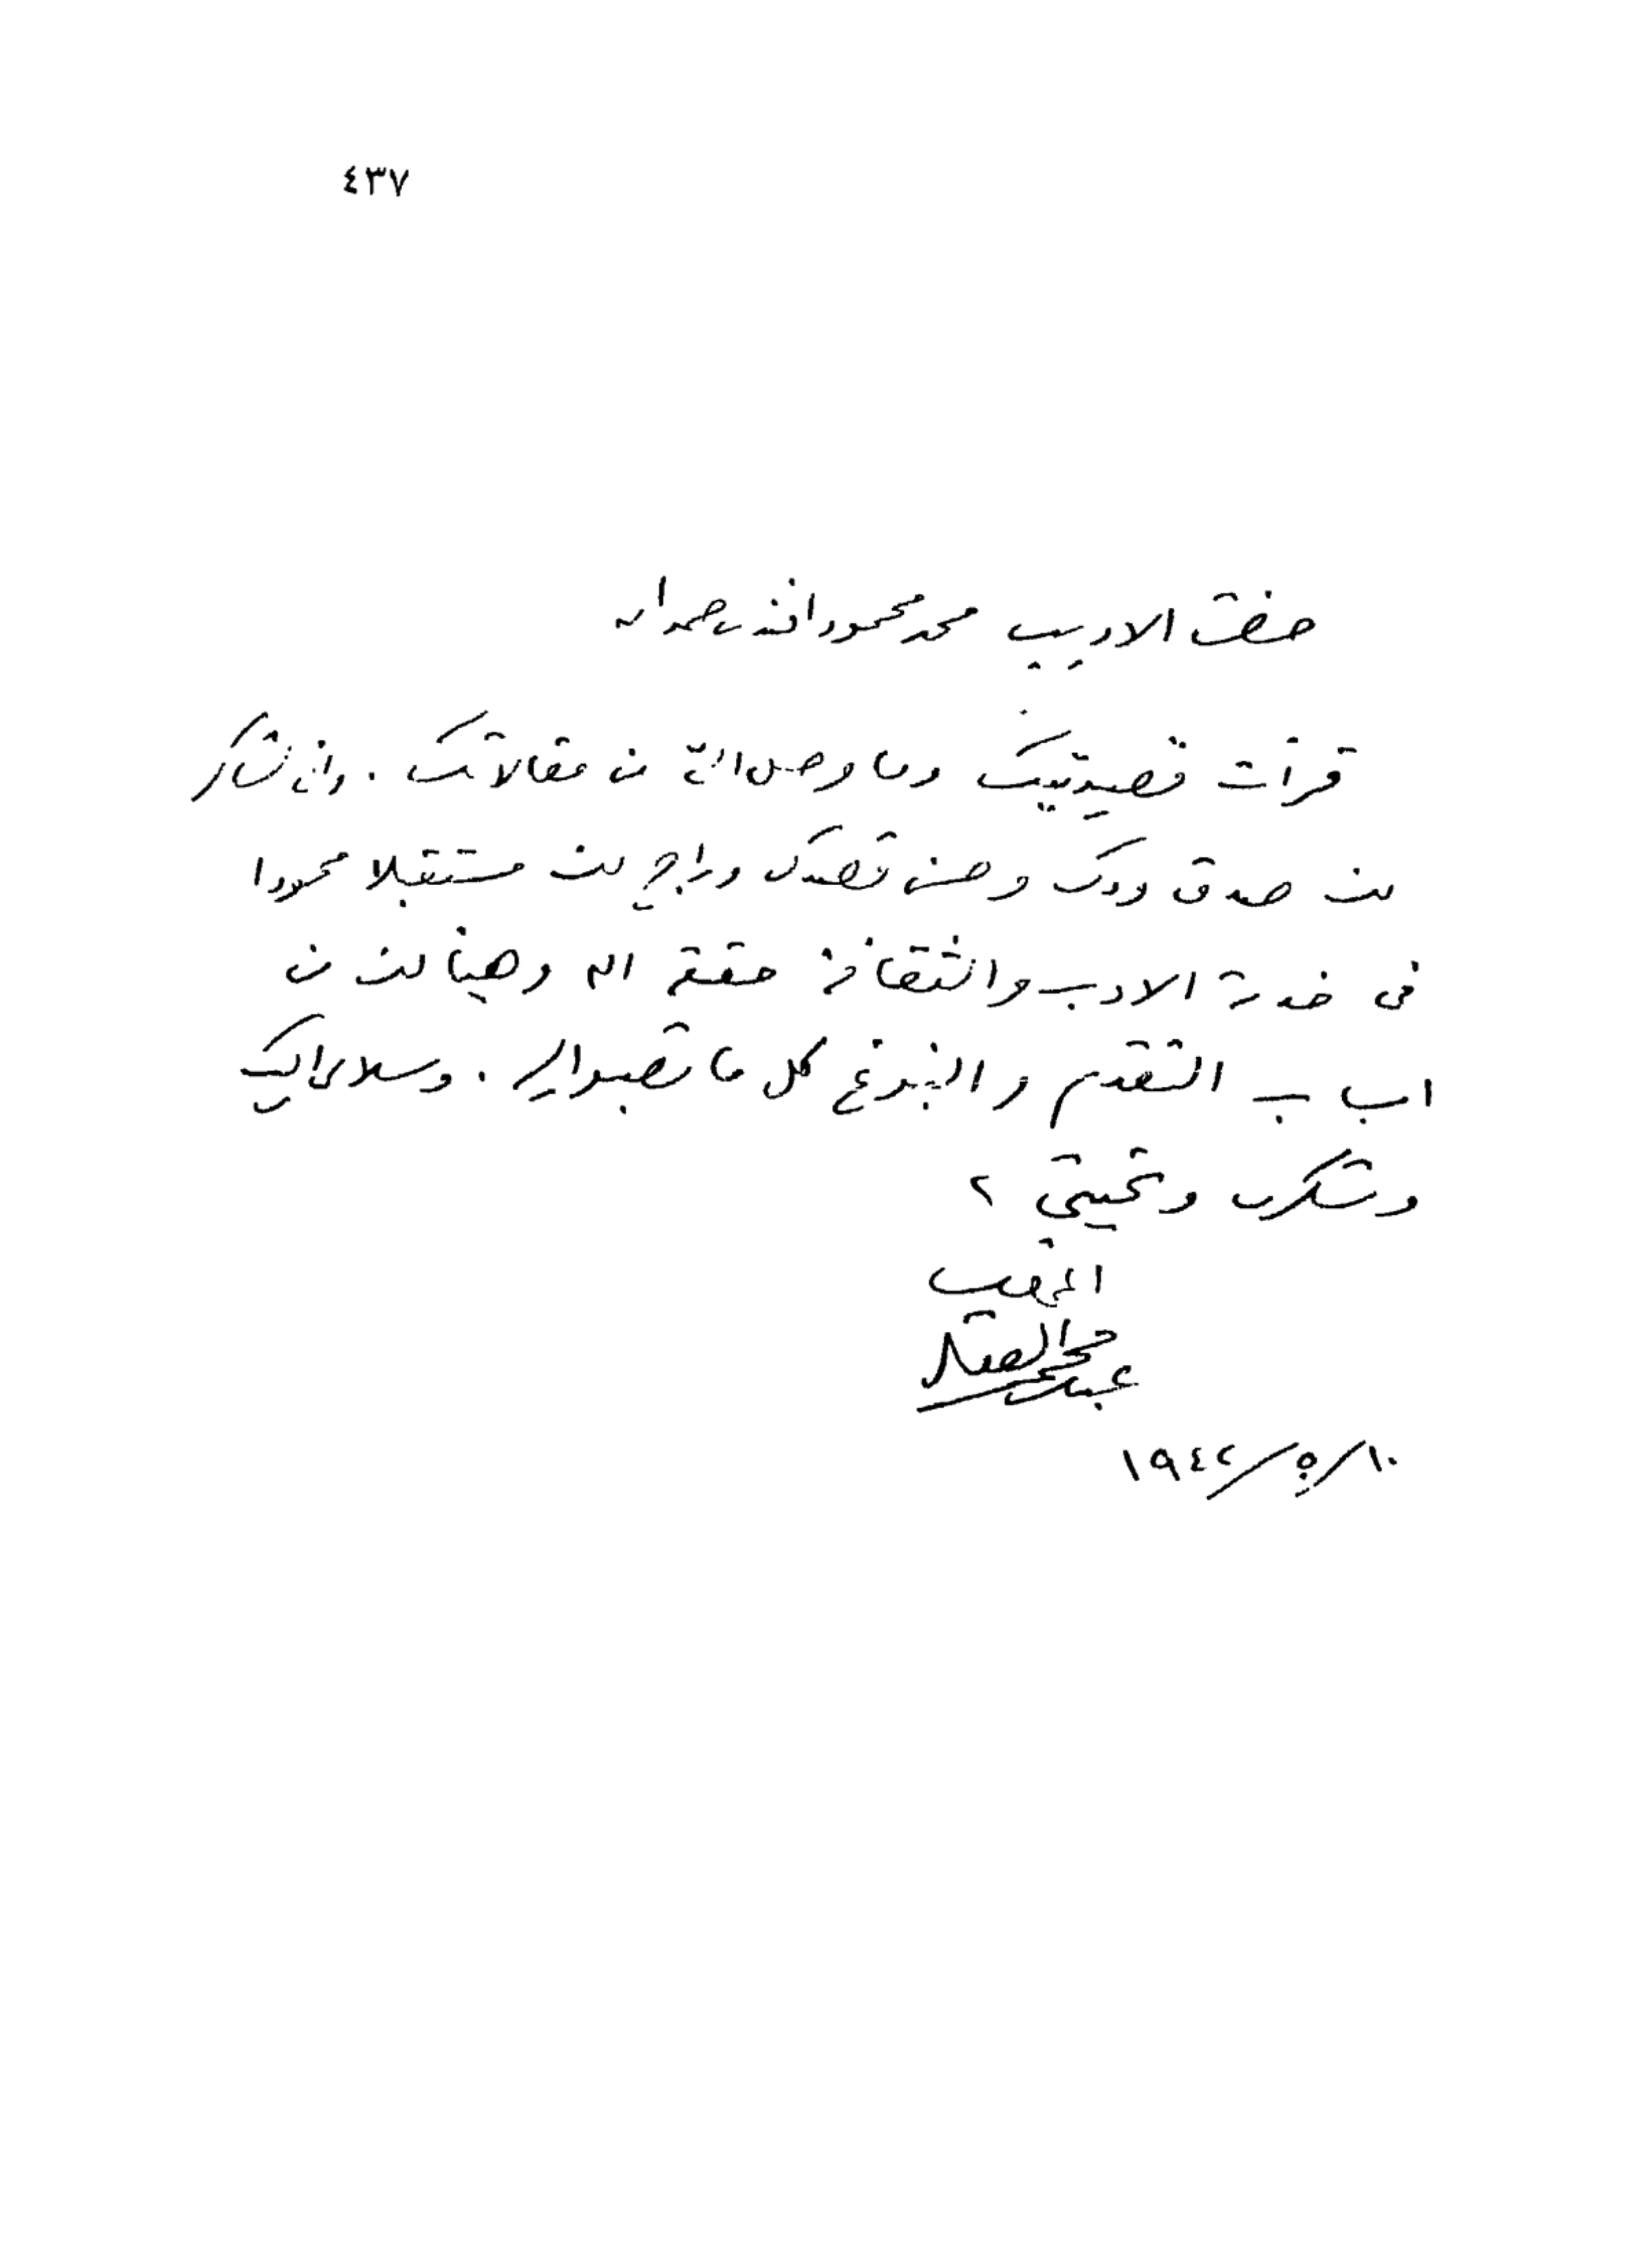 ٤٣٧
حضرة الاديب محمد محمود افندى حمدان
قرأت قصيدتيك وما وصل الىّ من مقالاتك . وانى شاكر
لك صدق ودك وحسن قصدك وراج لك مستقبلا محمودا
فى خدمة الادب والثقافة حققه الله وهيأ لك من
اسباب التقدم والنبوغ كل ما تصبو اليه . وسلامى اليك
وشكرى وتحيتى
المخلص
عباس محمود العقاد
١٠/٥/١٩٤٢